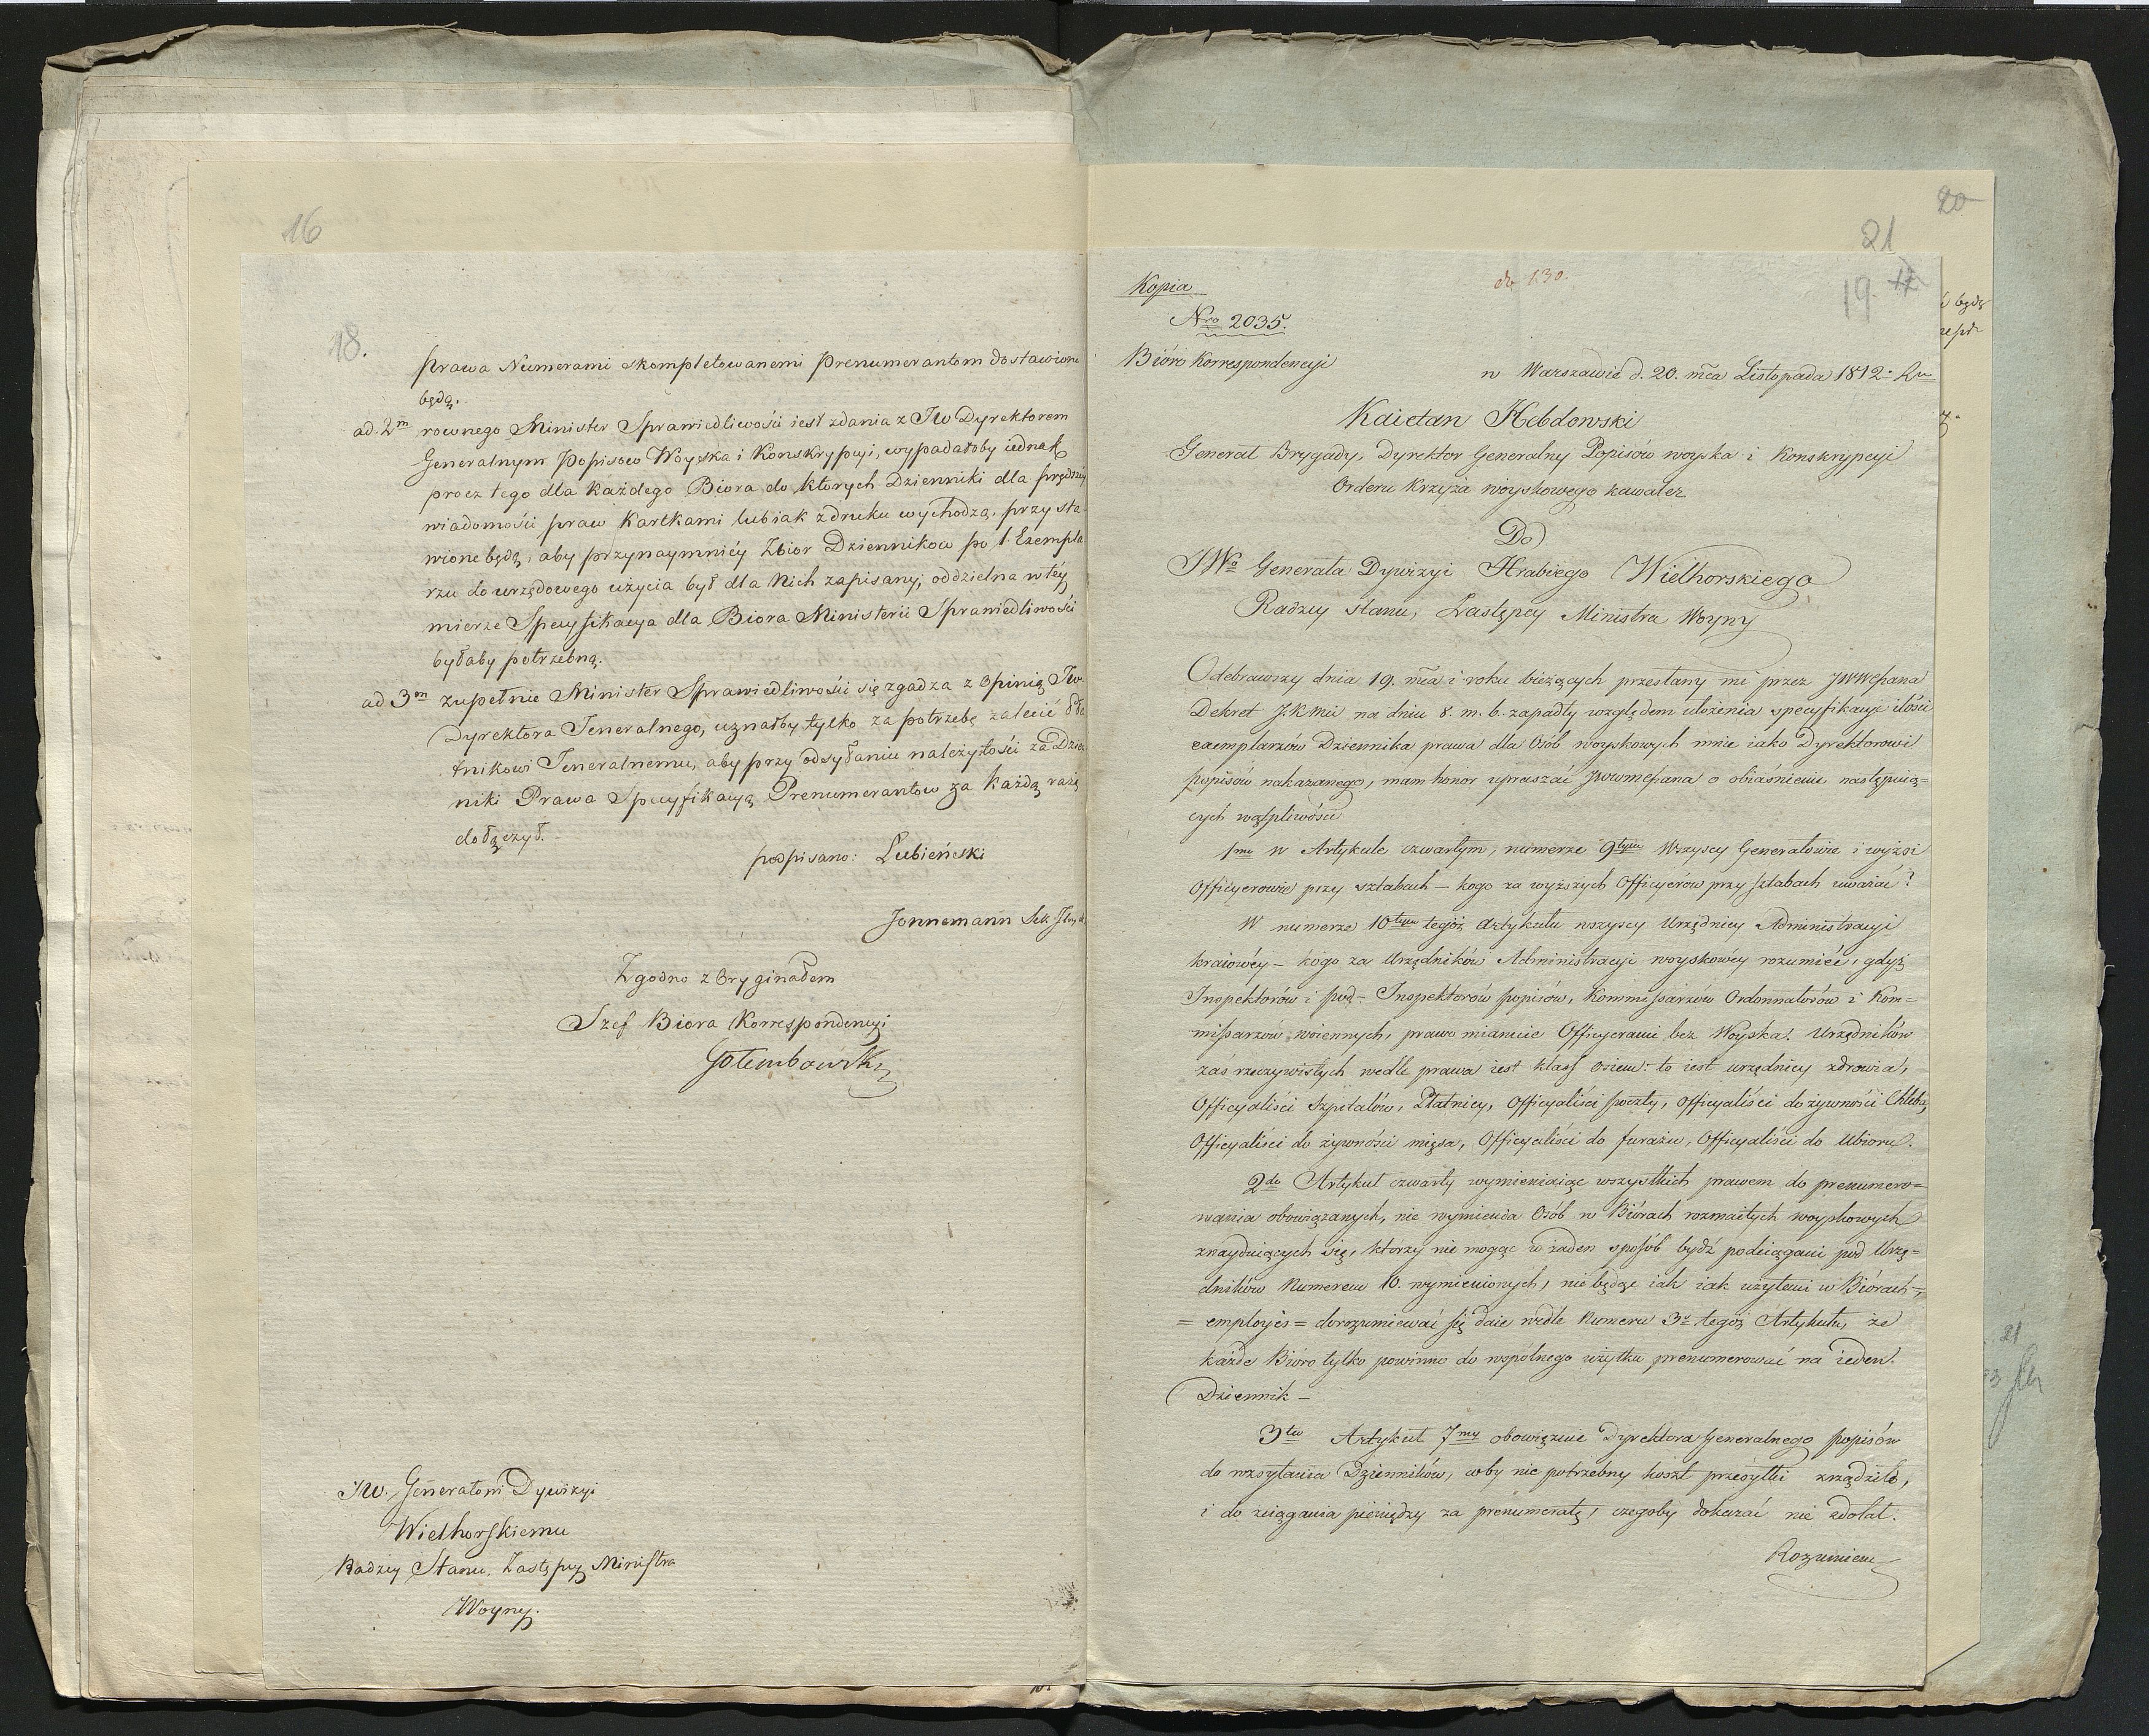 16
18.
prawa Numerami skompletowanemi Prenumerantom dostawione
będą.
ad. 2m rownego Minister Sprawiedliwości iest zdania z JW Dyrektorem
Generalnym Popisow Woyska i Konskrypcyi, wypadałoby iednak
procz tego dla każdego Biora do ktorych Dzienniki dla prędkiey
wiadomości praw kartkami lub iak z druku wychodzą, przysta-
wione będą, aby przynaymniéy Zbior Dziennikow po 1. Exempla
rzu do urzędowego użycia był dla Nich zapisany; oddzielna w téy
mierze Specyfikacya dla Biora Ministerii Sprawiedliwości
byłaby potrzebną.
ad 3m zupełnie Minister Sprawiedliwości się zgadza z Opinią JW.
Dyrektora Jeneralnego, uznałby tylko za potrzebę zalecić
Jeneralnemu, aby przy odsyłaniu należytości za Dzien
niki Prawa Specyfikacyą Prenumerantow za każdą razą
dołączył. -
podpisano: Lubieński
Jonnemann Sek
Zgodno z Oryginałem
Szef Biora Korrespondencyi
Gołembowski
JW. Generałowi Dywizyi
Wielhorskiemu
Radzcy Stanu, Zastępcy Ministra
Woyny.
20
21
19. 17
Kopia
do 130.
Nro 2035.
Bióro Korrespondencyi
w Warszawie d. 20. mca Listopada 1812. Ru
Kaietan Hebdowski
Generał Brygady, Dyrektor Generalny Popisów woyska i Konskrypcyi
Orderu Krzyża woyskowego kawaler
Do
JWo Generała Dywizyi Hrabiego Wielhorskiego
Radzcy stanu, Zastępcy Ministra Woyny
Odebrawszy dnia 19. mca i roku bieżących przesłany mi przez JWWPana
Dekret J.K.Mci na dniu 8. m. b. zapadły względem ułożenia specyfikacyi ilości
exemplarzów Dziennika prawa dla Osób woyskowych mnie iako Dyrektorowi
popisów nakazanego, mam honor upraszać JWWMPana o obiaśnienie następuią-
cych wątpliwości
1mo w Artykule czwartym, numerze 9tym Wszyscy Generałowie i wyżsi
Officyerowie przy sztabach - kogo za wyższych Officyerów przy sztabach uważać?
W numerze 10tym tegoż Artykułu wszyscy Urzędnicy Administracyi
kraiowéy - kogo za Urzędników Administracyi woyskowéy rozumiéć, gdyż
Inspektorów i pod-Inspektorów popisów, Kommissarzów Ordonnatorów i Kom=
missarzow woiennych, prawo mianuie Officyerami bez Woyska! Urzędników
zaś rzeczywistych wedle prawa iest klass osiem: to iest urzędnicy zdrowia,
Officyaliści Szpitalów, Płatnicy, Officyaliści poczty, Officyaliści do żywności Chleba,
Officyaliści do żywności mięsa, Officyaliści do furażu, Officyaliści do Ubioru.
2do Artykuł czwarty wymieniaiąc wszystkich prawem do prenumero=
wania obowiązanych, nie wymienia Osób w Biórach rozmaitych woyskowych
znayduiących się, którzy nie mogąc w żaden sposób bydź podciągani pod Urzę=
dników Numerem 10. wymienionych, nie będąc iak iak użytemi w Biórach =,
= employés = dorozumiewać się daie wedle Numeru 3o tegoż Artykułu, że
każde Bióro tylko powinno do wspólnego użytku prenumerować na ieden
Dziennik -
3tio Artykuł 7my obowięzuie Dyrektora Generalnego popisów
do rozsyłania Dzienników, coby nie potrzebny koszt przesyłki zrządziło,
i do ściągania pieniędzy za prenumeratę, czegoby dokazać nie zdołał.
Rozumiem
21